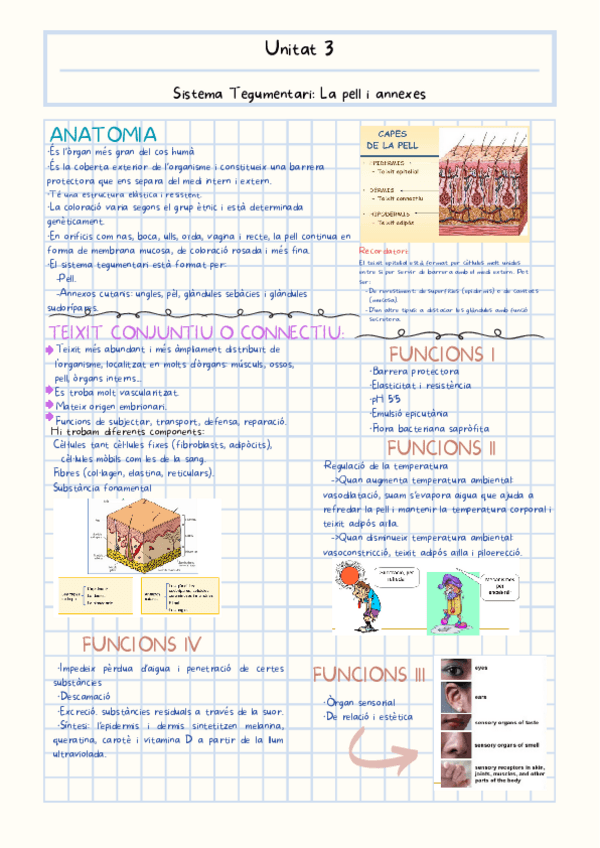 Unitat 3
Sistema Tegumentari: La pell i annexes
ANATOMIA
·És l'òrgan més gran del cos humà
·És la coberta exterior de l'organisme i constitueix una barrera
protectora que ens separa del medi intern i extern.
·Té una estructura elàstica i resistent.
·La coloració varia segons el grup ètnic i està determinada
genèticament.
·En orificis com nas, boca, ulls, orda, vagina i recte, la pell continua en
forma de membrana mucosa, de coloració rosada i més fina.
·El sistema tegumentari està format per:
-Pell.
-Annexos cutanis: ungles, pèl, glàndules sebàcies i glàndules
sudorípares.
CAPES
DE LA PELL
· EPIDERMIS
- Teixit epitelial
· DERMIS
- Teixit connectiu
· HIPODERMIS
- Teixit adipós
Recordatori:
El teixit epitelial està format per cèl·lules molt unides
entre si per servir de barrera amb el medi extern. Pot
ser:
- De revestiment: de superfícies (epidermis) o de cavitats
(mucosa).
- D'un altre tipus: a destacar les glàndules amb funció
secretora.
TEIXIT CONJUNTIU O CONNECTIU:
Teixit més abundant i més àmpliament distribuït de
l'organisme, localitzat en molts d'òrgans: músculs, ossos,
pell, òrgans interns...
Es troba molt vascularitzat.
Mateix origen embrionari.
Funcions de subjectar, transport, defensa, reparació.
Hi trobam diferents components:
Cèl·lules tant cèl·lules fixes (fibroblasts, adipòcits),
cèl·lules mòbils com les de la sang.
Fibres (col·lagen, elastina, reticulars).
Substància fonamental
FUNCIONS I
·Barrera protectora
·Elasticitat i resistència
·pH 5'5
·Emulsió epicutània
·Flora bacteriana sapròfita
FUNCIONS II
Regulació de la temperatura
->Quan augmenta temperatura ambiental:
vasodilatació, suam s'evapora aigua que ajuda a
refredar la pell i mantenir la temperatura corporal i
teixit adipós aïlla.
->Quan disminueix temperatura ambiental:
vasoconstricció, teixit adipós aïlla i piloerecció.
Mecanismes
per
FUNCIONS IV
·Impedeix pèrdua d'aigua i penetració de certes
substàncies
·Descamació
·Excreció: substàncies residuals a través de la suor.
·Síntesi: l'epidermis i dermis sintetitzen melanina,
queratina, carotè i vitamina D a partir de la llum
ultraviolada.
FUNCIONS III
·Òrgan sensorial
·De relació i estètica
eyes
ears
sensory organs of taste
sensory organs of smell
sensory receptors in skin,
joints, muscles, and other
parts of the body